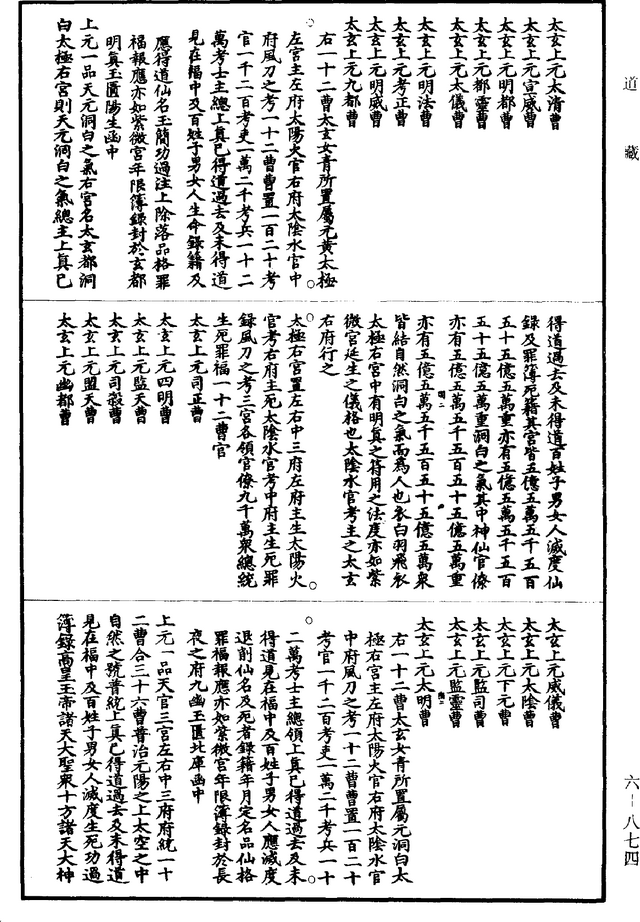 道藏
太玄上元太清曹
太玄上元宣威曹
太玄上元明都曹
太玄上元都靈曹
太玄上元太儀曹
太玄上元明法曹
太玄上元考正曹
太玄上元明威曹
太玄上元九都曹
右一十二曹太玄女青所置屬元黄太極
左宫主左府太陽火官右府太陰水官中
府風刀之考一十二曹曹置一百二十考
官一千二百考吏一萬二千考兵一十二
萬考士主總上真已得道過去及未得道
見在福中及百姓子男女人生命録籍及
應得道仙名玉簡功過注上除落品格罪
福報應亦如紫微宫年限簿録封於玄都
明真玉匱陽生函中
上元一品天元洞白之氣右宫名太玄都洞
白太極右宫則天元洞白之氣總主上真已
得道過去及未得道百姓子男女人滅度仙
録及罪簿死籍其宫皆五億五萬五千五百
五十五億五萬重亦有五億五萬五千五百
五十五億五萬重洞白之氣其中神仙官僚
亦有五億五萬五千五百五十五億五萬重
亦有五億五萬五千五百五十五億五萬衆
皆結自然洞白之氣而爲人也衣白羽飛衣
太極右宫中有明真之符用之法度亦如紫
微宫延生之儀格也太陰水官考主之太玄
右府行之
太極右宫置左右中三府左府主生太陽火
官考右府主死太陰水官考中府主生死罪
録風刀之考三宫各領官僚九千萬衆總統
生死罪福一十二曹官
太玄上元司正曹
太玄上元四明曹
太玄上元監天曹
太玄上元司殺曹
太玄上元盟天曹
太玄上元幽都曹
太玄上元威儀曹
太玄上元太陰曹
太玄上元下元曹
太玄上元監司曹
太玄上元監靈曹
太玄上元太明曹
右一十二曹太玄女青所置屬元洞白太
極右宫主左府太陽火官右府太陰水官
中府風刀之考一十二曹曹置一百二十
考官一千二百考吏一萬二千考兵一十
二萬考士主總領上真已得道過去及未
得道見在福中及百姓子男女人應滅度
退削仙名及死者録籍年月定名品仙格
罪福報應亦如紫微宫年限簿録封於長
夜之府九幽玉匱北庫函中
上元一品天官三宫左右中三府府統一十
二曹合三十六曹普治元陽之上太空之中
自然之號普統上真已得道過去及未得道
見在福中及百姓子男女人滅度生死功過
簿録高皇玉帝諸天大聖衆十方諸天大神
六-八七四